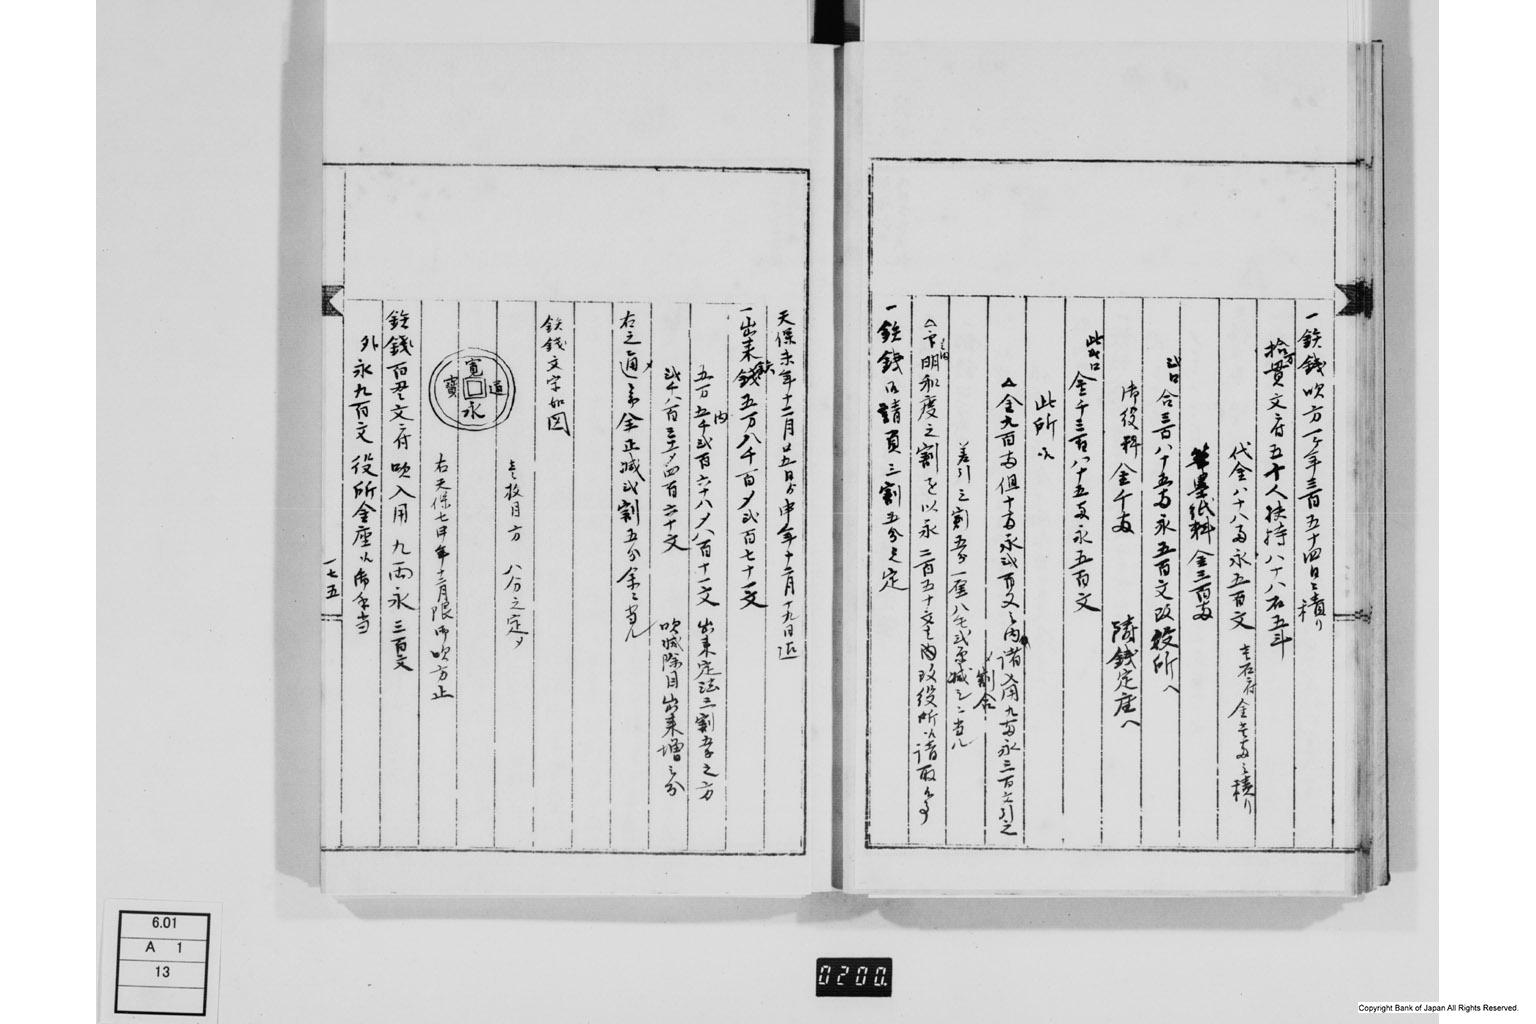 一鉄銭吹方一ケ年三百五十四日之積り
拾万貫文ニ付五十人扶持八十八石五斗
代金八十八両永五百文 壱石ニ付金壱両之積り
筆墨紙料 金三百両
〆口合三百八十五両永五百文改役所へ
御役料金千両 鋳銭定座へ
此〆口
金千三百八十五両永五百文
此所へ
△金九百両但十両永弐百文之内諸入用九両永三百文引之
差引三割五分一厘八毛弐 減ニ当ル
割合
△ 明和度之割を以永二百五十文之内改役所 請取
一鉄銭 請負三割五分之定
天保未年十二月廿五日ゟ申年十二月十九日迄
一出来鉄銭五万八千百〆弐百七十一文
内
五万五千弐百六十八〆八百十一文 出来定法三割 之方
弐千八百三十〆四百六十文 吹減除目出来増之分
右之通 〆金正減弐割五分余ニ当ル
鉄銭文字如図
寛永通寳
壱枚目方 八分之定〆
右天保七申年十二月限御吹方止
鉄銭百 文ニ付吹入用 九両永三百文
外 永九百文 役所金座 御手当
一七五
6.01
A 1
13
0200.
Copyright Bank of Japan All Rights Reserved.